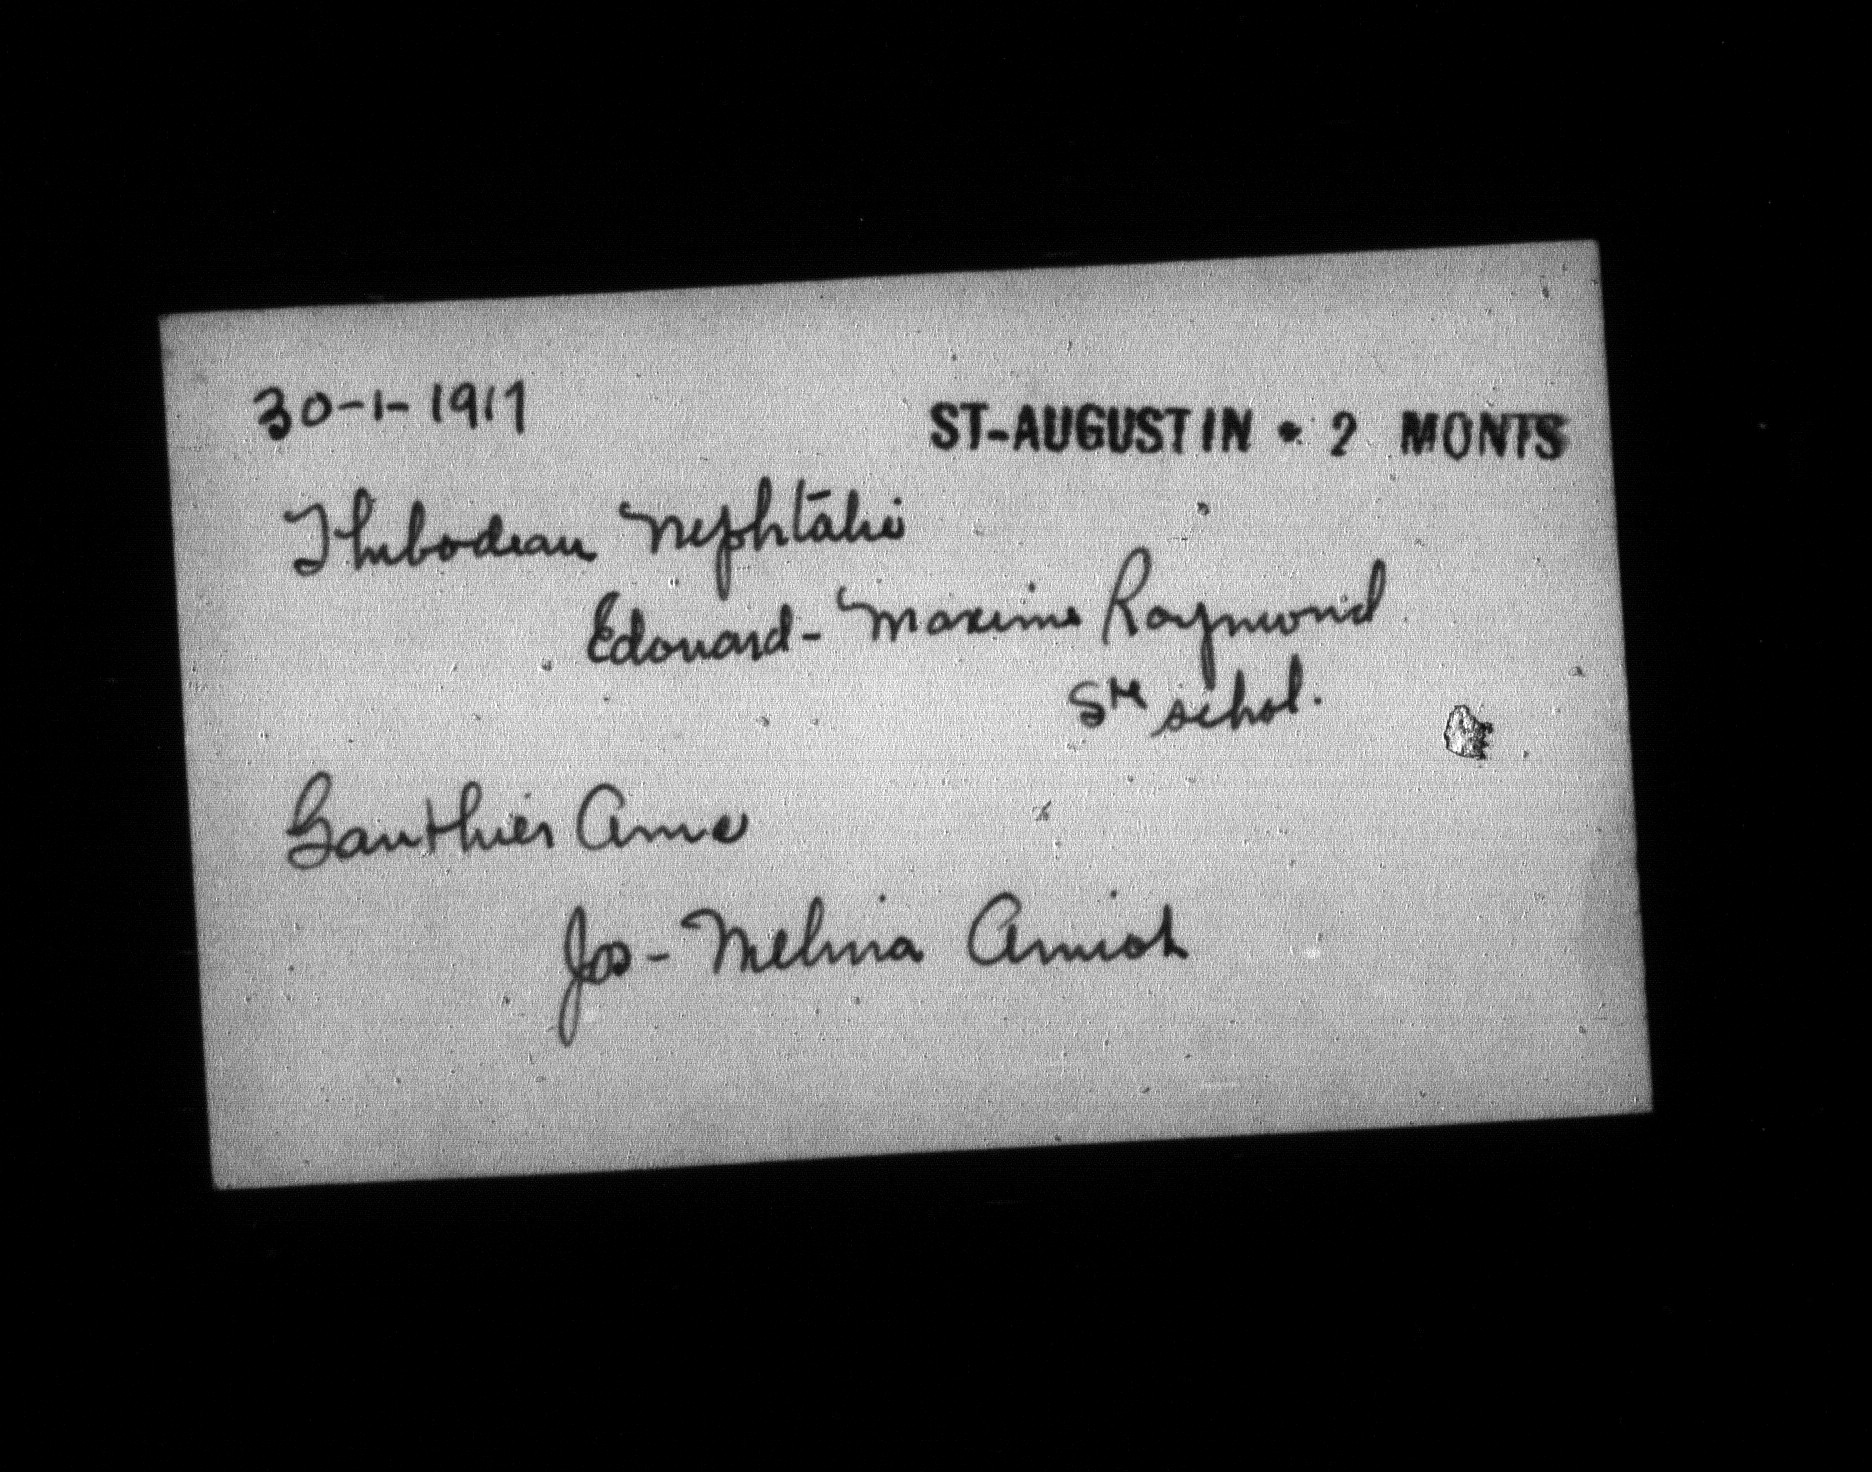 30-1-1917 ST-AUGUSTIN - 2 MONTS
Thibodeau Nephtalie
Edouard - Maxime Raymond
Ste schol.
Gauthier Anna
Jos - Melina Amiot